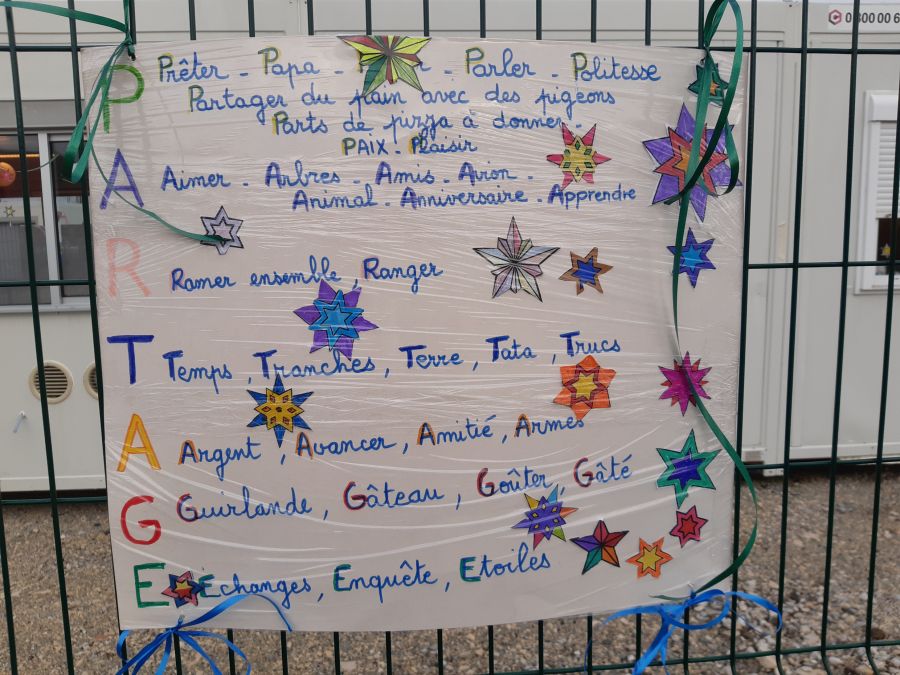 P Prêter - Papa - - Parler - Politesse
Partager du pain avec des pigeons
Parts de pizza à donner -
PAIX - Plaisir
A Aimer - Arbres - Amis - Avion -
Animal - Anniversaire - Apprendre
R Ramer ensemble, Ranger
T Temps, Tranches, Terre, Tata, Trucs
A Argent, Avancer, Amitié, Armes
G Guirlande, Gâteau, Goûter, Gâté
E Echanges, Enquête, Etoiles